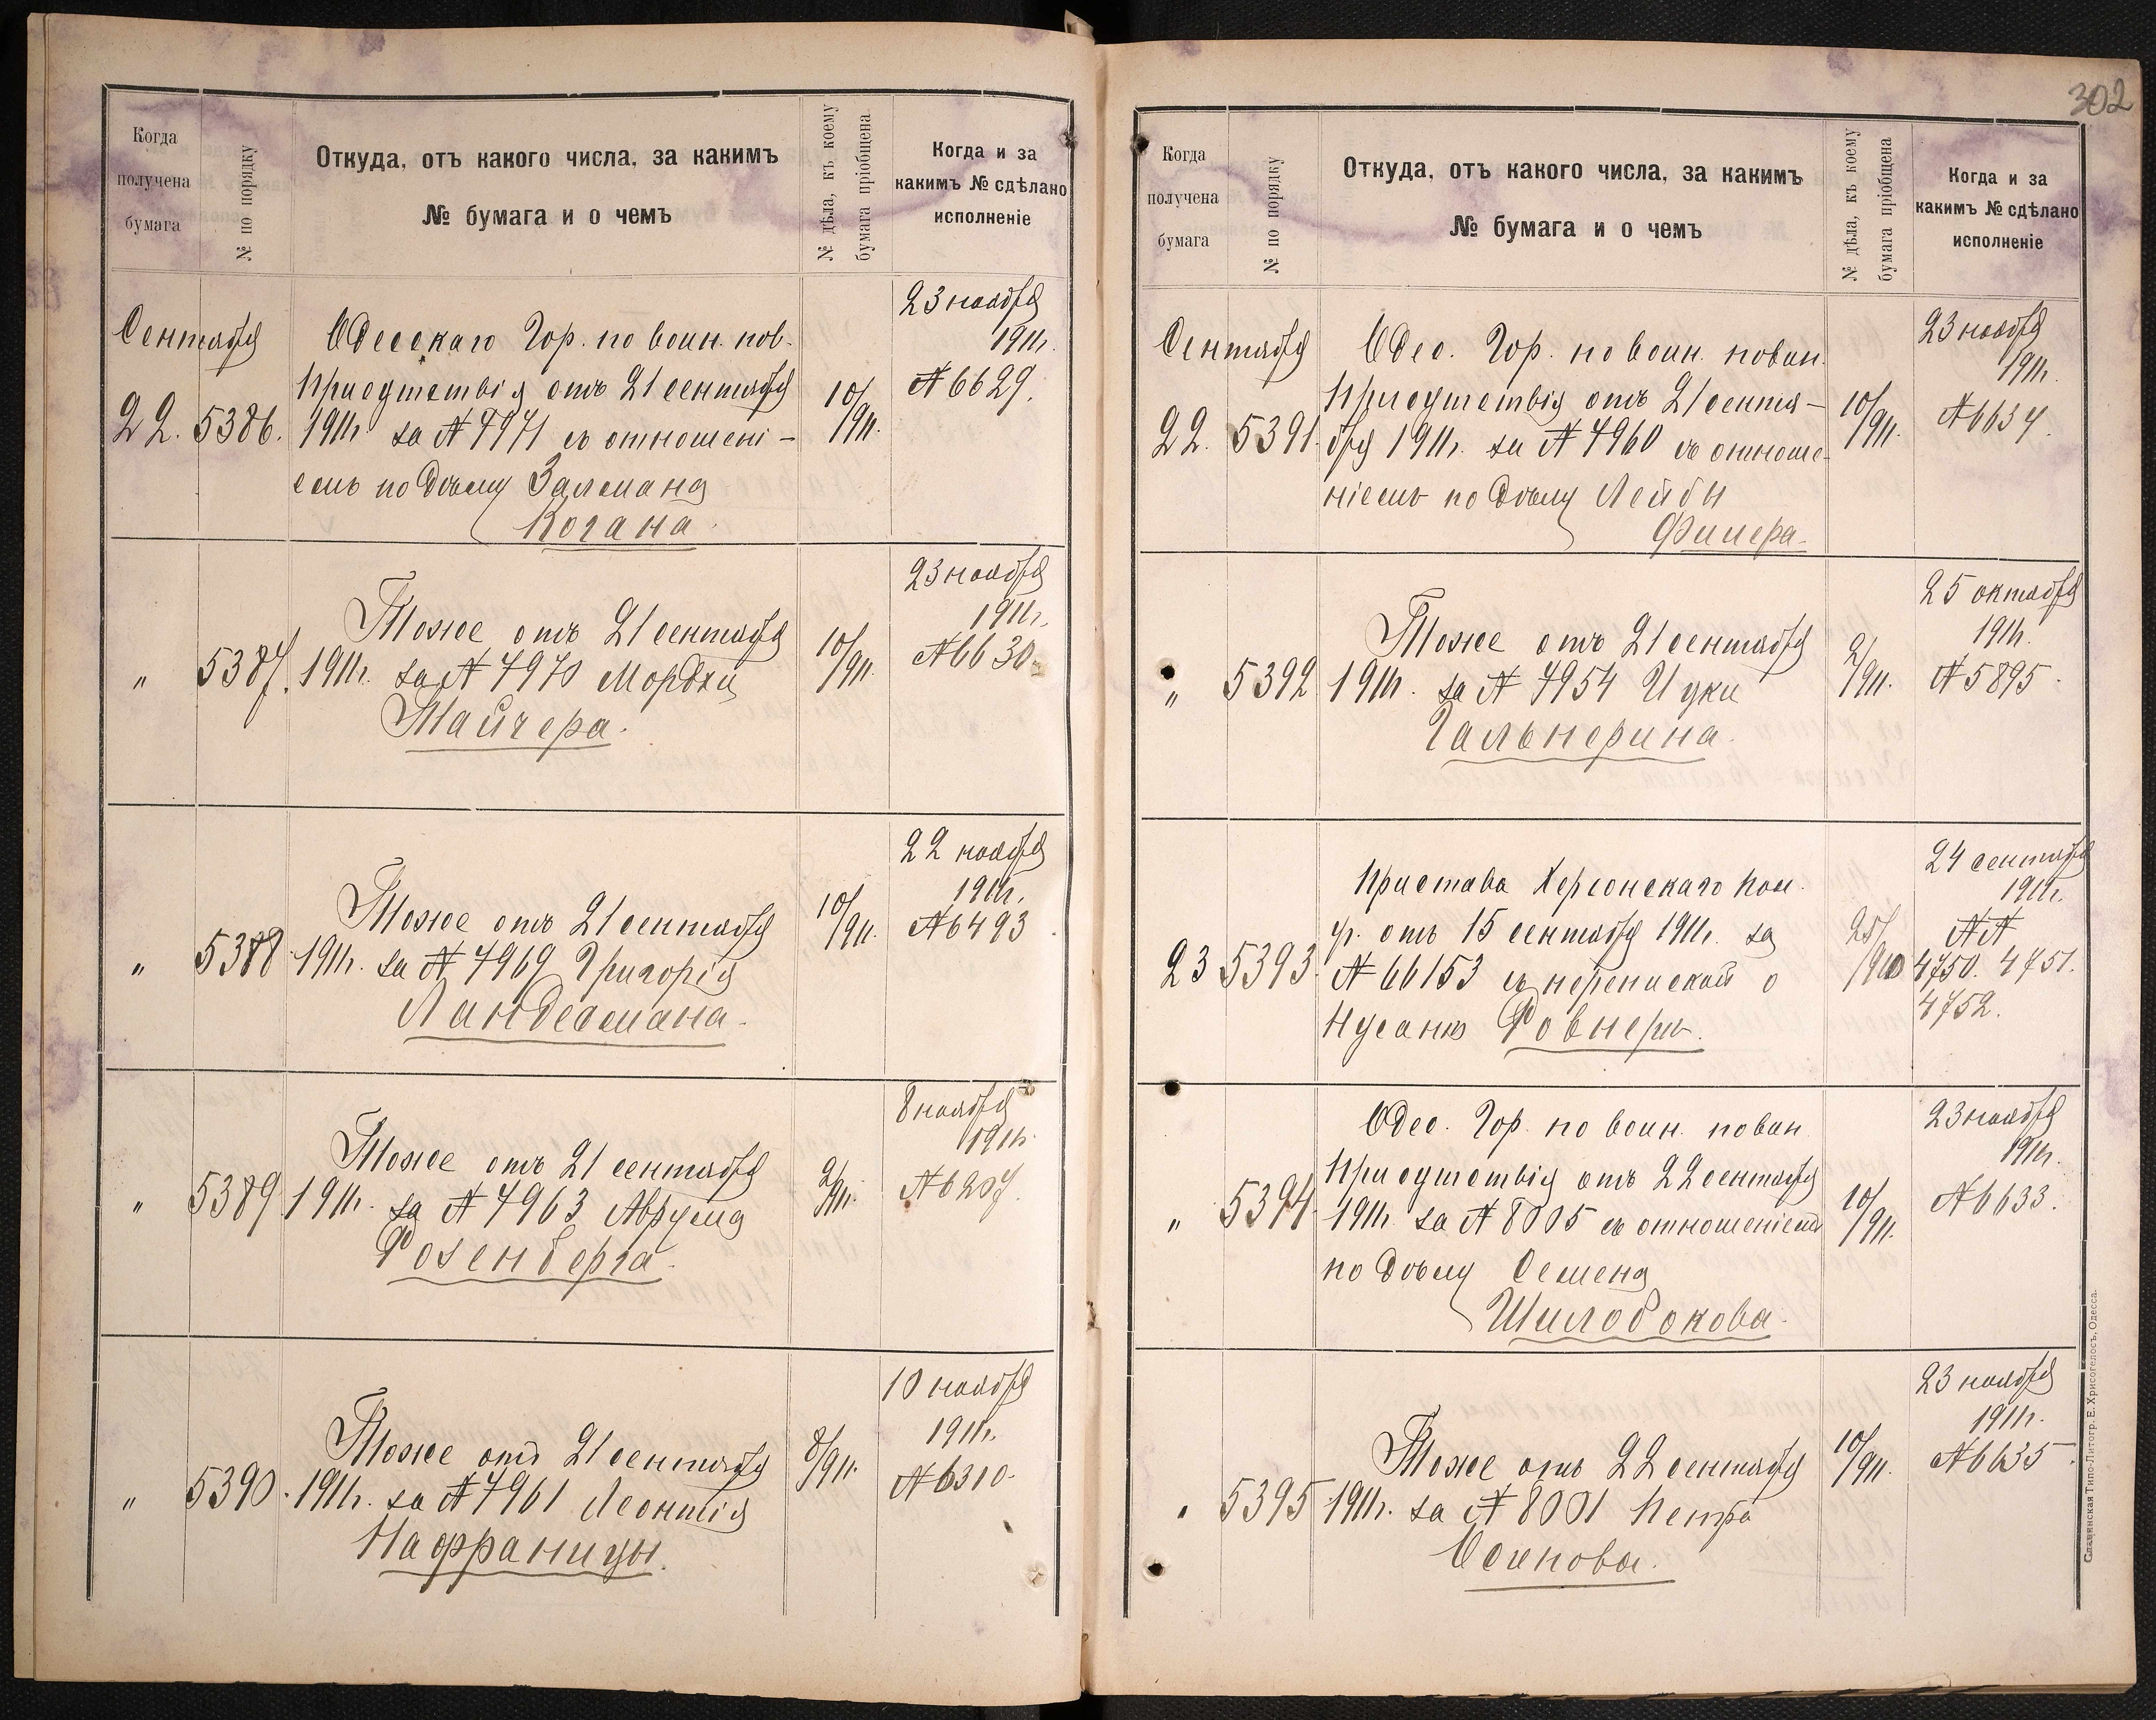 302
Когда
получена
бумага
№ по порядку
Откуда, отъ какого числа, за какимъ
№ бумага и о чемъ
№ дѣла, къ коему
бумага пріобщена
Когда и за
какимъ № сдѣлано
исполненіе
Сентября
22. 5386.
Одесскаго Гор. по воин. пов.
присутствія отъ 21 сентября
1911г. за № 7971 съ отношені-
емъ по дѣлу Залмана
Когана.
10/911.
23 ноября
1911г.
№ 6629.
" 5387.
Тоже отъ 21 сентября
1911г. за № 7970 Мордки
Тайчера.
10/911.
23 ноября
1911г.
№ 6630.
" 5388
Тоже отъ 21 сентября
1911г. за № 7969 Григорія
Ландесмана.
10/911.
22 ноября
1911г.
№ 6493.
" 5389
Тоже отъ 21 сентября
1911г. за № 7963 Аврума
Розенберга.
2/911.
8 ноября
1911г.
№ 6207.
" 5390.
Тоже отъ 21 сентября
1911г. за № 7961 Леонтія
Наффаницы.
8/911.
10 ноября
1911г.
№ 6310.
Когда
получена
бумага
№ по порядку
Откуда, отъ какого числа, за какимъ
№ бумага и о чемъ
№ дѣла, къ коему
бумага пріобщена
Когда и за
какимъ № сдѣлано
исполненіе
Сентября
22. 5391.
Одес. Гор. по воин. повин.
Присутствія отъ 21 сентя-
бря 1911г. за № 7960 съ отноше-
ніемъ по дѣлу Лейбы
Фишера.
10/911.
23 ноября
1911г.
№ 6634.
" 5392
Тоже отъ 21 сентября
1911г. за № 7954 Ицки
Гальперина.
2/911.
25 октября
1911г.
№ 5895.
23 5393.
Пристава Херсонскаго пол.
уч. отъ 15 сентября 1911г. за
№ 66153 съ перепиской о
Нусанѣ Ровнеръ.
25/910
24 сентября
1911г.
№№
4750. 4751.
4752.
" 5394.
Одес. Гор. по воин. повин
Присутствія отъ 22 сентября
1911г. за № 8005 съ отношеніемъ
по дѣлу Семена
Шилобокова.
10/911.
23 ноября
1911г.
№ 6633.
" 5395
Тоже отъ 22 сентября
1911г. за № 8001 Петра
Осипова.
10/911.
23 ноября
1911г.
№ 6635.
Славянская Типо-Литогр. Е. Хрисогелосъ, Одесса.